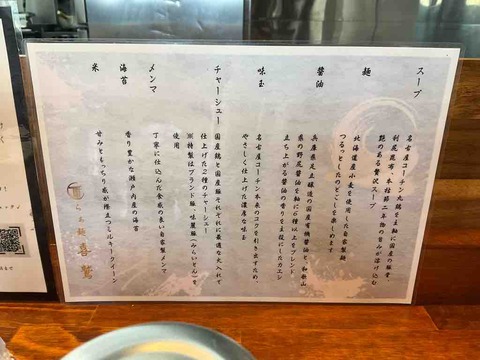 スープ
名古屋コーチン丸鶏を主軸に国産の豚骨、
利尻昆布、本枯節二年物の旨みが溶け込む
艶のある贅沢スープ
麺
北海道産小麦を使用した自家製麺
つるっとしたのどごしをお楽しみ
醤油
兵庫県足立醸造の国産有機醤油と、和歌山
県の野尻醤油を軸に6種以上をブレンド。
立ち上がる醤油の香りを主役にしたカエシ
味玉
名古屋コーチン本来のコクを引き出すため、
やさしく仕上げた濃厚な味玉
チャーシュー
国産鶏と国産豚をそれぞれに最適な火入れで
仕上げた2種のチャーシュー
※特製はブランド豚、味麗豚(みらいとん)を
使用
メンマ
丁寧に仕込んだ食感の良い自家製メンマ
海苔
香り豊かな瀬戸内産の海苔
米
甘みともっちり感が際立つミルキークイーン
らぁ麺
喜鷲